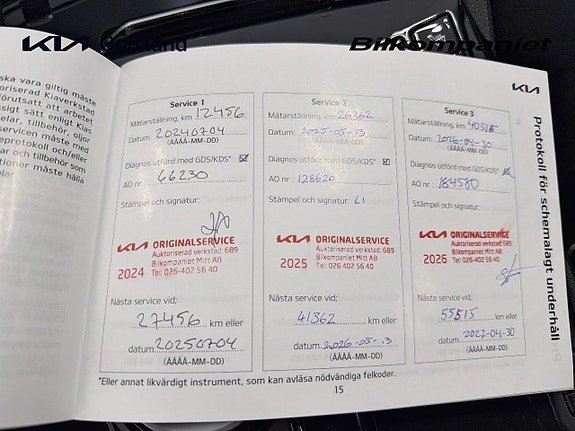 KIA
Bilkompaniet
KIA
ska vara giltig måste
toriserad Kiaverkstad
förutsatt att arbetet
ssigt sätt enligt Kias
elar, tillbehör, oljor
servicen måste med
eprotokoll och/eller
ar och tillbehör som
tioner måste hålla
Protokoll för schemalagt underhåll
Service 1
Mätarställning, km 12456
Datum: 20240704
(ÅÅÅÅ-MM-DD)
Diagnos utförd med GDS/KDS*
AO nr: 66230
Stämpel och signatur:
KIA ORIGINALSERVICE
Auktoriserad verkstad: 689
Bilkompaniet Mitt AB
2024 Tel: 026-402 56 40
Nästa service vid;
27456 km eller
datum 20250704
(ÅÅÅÅ-MM-DD)
Service 2
Mätarställning, km 26362
Datum: 2025-05-13
(ÅÅÅÅ-MM-DD)
Diagnos utförd med GDS/KDS*
AO nr: 128620
Stämpel och signatur: 61
KIA ORIGINALSERVICE
Auktoriserad verkstad: 689
Bilkompaniet Mitt AB
2025 Tel: 026-402 56 40
Nästa service vid;
41362 km eller
datum 2026-05-13
(ÅÅÅÅ-MM-DD)
Service 3
Mätarställning, km 40515
Datum: 2026-04-30
(ÅÅÅÅ-MM-DD)
Diagnos utförd med GDS/KDS*
AO nr: 184580
Stämpel och signatur:
KIA ORIGINALSERVICE
Auktoriserad verkstad: 689
Bilkompaniet Mitt AB
2026 Tel: 026-402 56 40
Nästa service vid;
55515 km eller
datum 2027-04-30
(ÅÅÅÅ-MM-DD)
*Eller annat likvärdigt instrument, som kan avläsa nödvändiga felkoder.
15